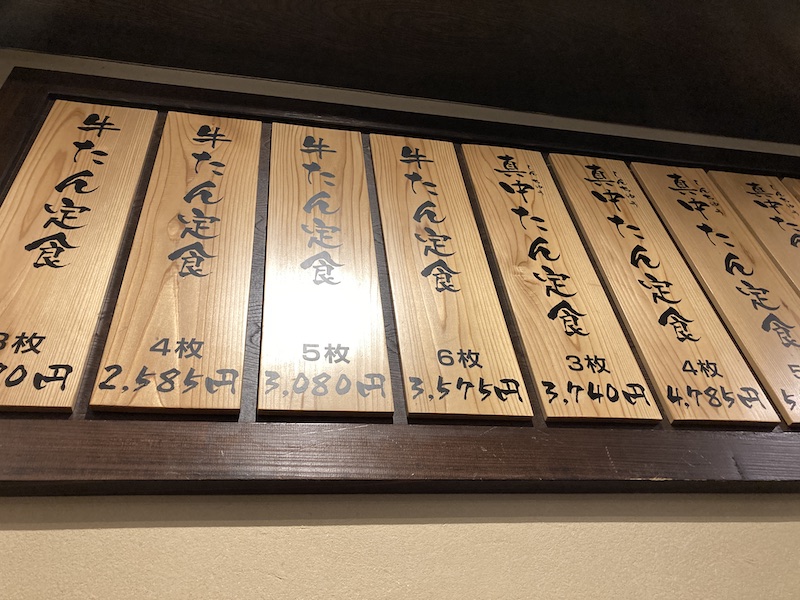 牛たん定食
3枚
90円
牛たん定食
4枚
2,585円
牛たん定食
5枚
3,080円
牛たん定食
6枚
3,575円
真中たん定食
3枚
3,740円
真中たん定食
4枚
4,785円
真中たん定食
5
真中た